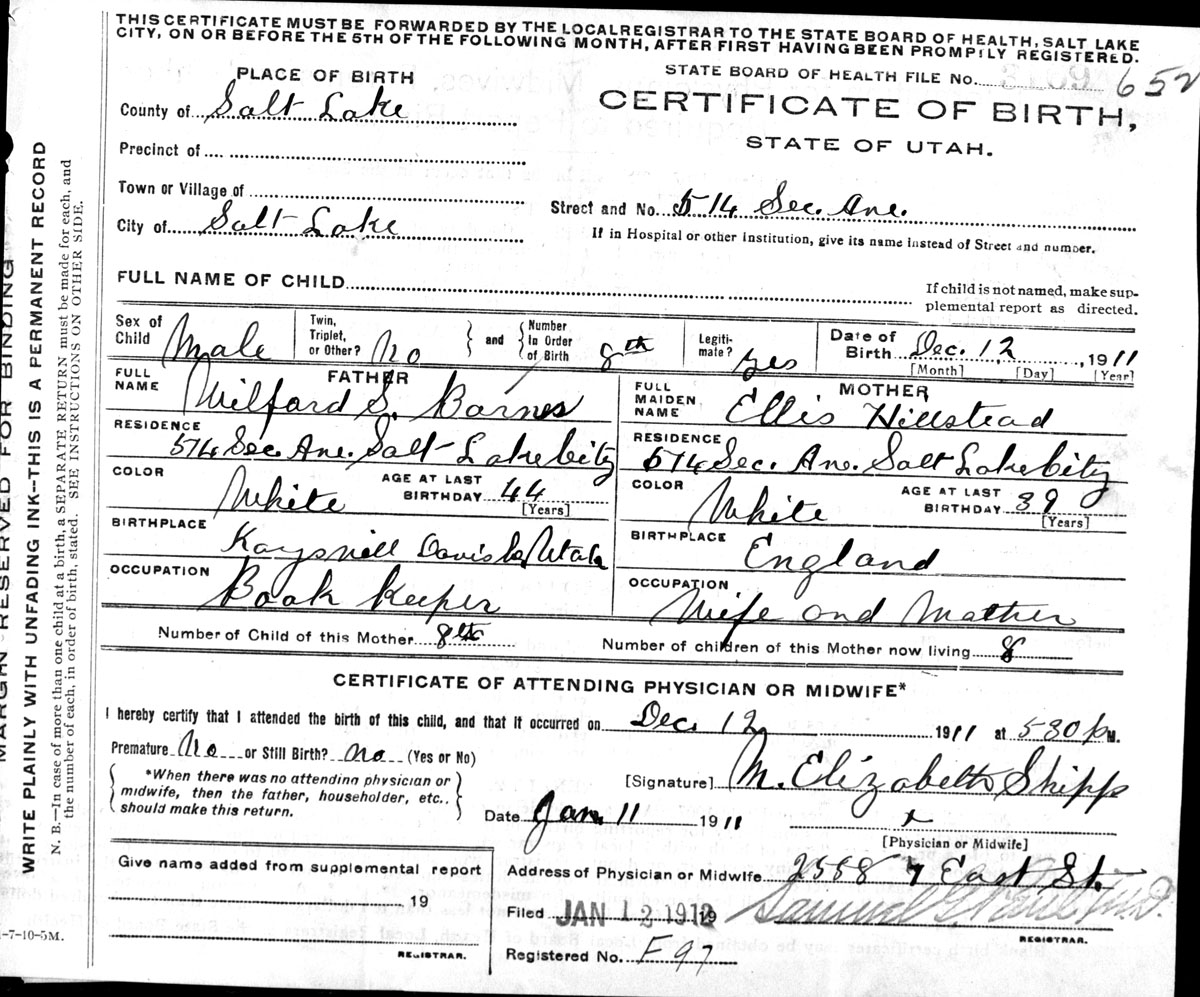 THIS CERTIFICATE MUST BE FORWARDED BY THE LOCAL REGISTRAR TO THE STATE BOARD OF HEALTH, SALT LAKE
CITY, ON OR BEFORE THE 5TH OF THE FOLLOWING MONTH, AFTER FIRST HAVING BEEN PROMPILY REGISTERED.
PLACE OF BIRTH
STATE BOARD OF HEALTH FILE NO. 652
County of Salt Lake
CERTIFICATE OF BIRTH,
STATE OF UTAH.
Precinct of
Town or Village of
Street and No. 514 Sec. Ave.
City of Salt Lake
If in Hospital or other Institution, give its name instead of Street and number.
FULL NAME OF CHILD
If child is not named, make sup-
plemental report as directed.
Sex of Child Male
Twin, Triplet, or Other? No
and
Number In Order of Birth 8th
Legiti-mate? yes
Date of Birth Dec. 12, 1911
[Month] [Day] [Year]
FATHER
FULL NAME Wilford S. Barnes
MOTHER
FULL MAIDEN NAME Ellis Hillstead
RESIDENCE 514 Sec. Ave. Salt Lake City
RESIDENCE 514 Sec. Ave. Salt Lake City
COLOR White
AGE AT LAST BIRTHDAY 44
[Years]
COLOR White
AGE AT LAST BIRTHDAY 39
[Years]
BIRTHPLACE Kaysvill Davis Co, Utah
BIRTHPLACE England
OCCUPATION Book Keeper
OCCUPATION Wife and Mother
Number of Child of this Mother 8th
Number of children of this Mother now living 8
CERTIFICATE OF ATTENDING PHYSICIAN OR MIDWIFE*
I hereby certify that I attended the birth of this child, and that it occurred on Dec. 12 1911 at 530 p M.
Premature No or Still Birth? no (Yes or No)
*When there was no attending physician or
midwife, then the father, householder, etc..
should make this return.
[Signature] M. Elizabeth Shipp
Date Jan. 11 1911
x
[Physician or Midwife]
Give name added from supplemental report
19
REGISTRAR.
Address of Physician or Midwife 2558 7 East St.
Filed JAN 12 1912 19
Samuel G. M.D.
REGISTRAR.
Registered No. F 97
MARGAN RESERVED FOR BINDING
WRITE PLAINLY WITH UNFADING INK—THIS IS A PERMANENT RECORD
N. B.—In case of more than one child at a birth, a SEPARATE RETURN must be made for each, and
the number of each, in order of birth, stated. SEE INSTRUCTIONS ON OTHER SIDE.
-7-10-5M.